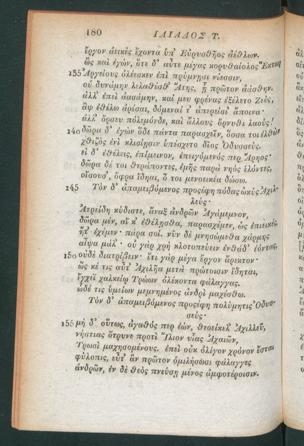 180 ΙΛΙΑΔΟΣ Τ.
ἔργον ἀεικὲς ἔχοντα ὑπ' Εὐρυσθῆος ἀέθλων.
ὣς καὶ ἐγὼν, ὅτε δ' αὖτε μέγας κορυθαίολος Ἕκτωρ
135 Ἀργείους ὀλέκεσκεν ἐπὶ πρύμνῃσι νέεσσιν,
οὐ δυνάμην λελαθέσθ' Ἄτης, ᾗ πρῶτον ἀάσθην.
ἀλλ' ἐπεὶ ἀασάμην, καί μευ φρένας ἐξέλετο Ζεὺς,
ἂψ ἐθέλω ἀρέσαι, δόμεναί τ' ἀπερείσι' ἄποινα·
ἀλλ' ὄρσευ πόλεμόνδε, καὶ ἄλλους ὄρνυθι λαούς!
140 δῶρα δ' ἐγὼν ὅδε πάντα παρασχεῖν, ὅσσα τοι ἐλθὼν
χθιζὸς ἐνὶ κλισίῃσιν ὑπέσχετο δῖος Ὀδυσσεύς.
εἰ δ' ἐθέλεις, ἐπίμεινον, ἐπειγόμενός περ Ἄρηος·
δῶρα δέ τοι θεράποντες, ἐμῆς παρὰ νηὸς ἑλόντες,
οἴσουσ', ὄφρα ἴδηαι, ὅ τοι μενοεικέα δώσω.
145 Τὸν δ' ἀπαμειβόμενος προσέφη πόδας ὠκὺς Ἀχιλ-
λεύς·
Ἀτρείδη κύδιστε, ἄναξ ἀνδρῶν Ἀγάμεμνον,
δῶρα μὲν, αἴ κ' ἐθέλῃσθα, παρασχέμεν, ὡς ἐπιεικὲς,
ἤτ' ἐχέμεν· πάρα σοί. νῦν δὲ μνησώμεθα χάρμης
αἶψα μάλ'· οὐ γὰρ χρὴ κλοτοπεύειν ἐνθάδ' ἐόντας,
150 οὐδὲ διατρίβειν· ἔτι γὰρ μέγα ἔργον ἄρεκτον·
ὥς κέ τις αὖτ' Ἀχιλῆα μετὰ πρώτοισιν ἴδηται,
ἔγχεϊ χαλκείῳ Τρώων ὀλέκοντα φάλαγγας.
ὧδέ τις ὑμείων μεμνημένος ἀνδρὶ μαχέσθω.
Τὸν δ' ἀπαμειβόμενος προσέφη πολύμητις Ὀδυσ-
σεύς·
155 μὴ δ' οὕτως, ἀγαθός περ ἐὼν, θεοείκελ' Ἀχιλλεῦ,
νήστιας ὄτρυνε προτὶ Ἴλιον υἷας Ἀχαιῶν,
Τρωσὶ μαχησομένους. ἐπεὶ οὐκ ὀλίγον χρόνον ἔσται
φύλοπις, εὖτ' ἂν πρῶτον ὁμιλήσωσι φάλαγγες
ἀνδρῶν, ἐν δὲ θεὸς πνεύσῃ μένος ἀμφοτέροισιν.